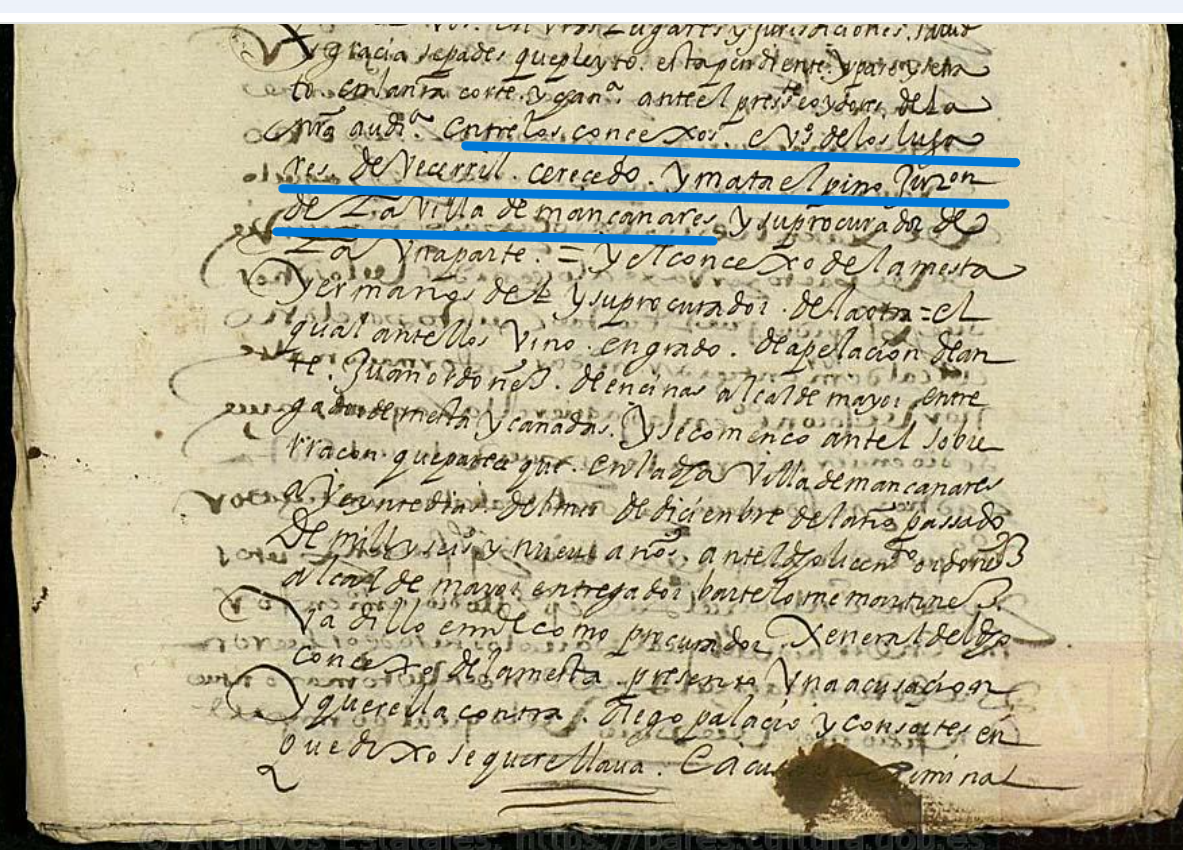 vos. en vros Lugares y jurisdiciones. salud
y gracia sepades que pleyto. esta pendiente. y paso y se tra
to. en la nra corte. y chanª. ante el press.te e oydores de La
nra audiª. entre los concexos. e vºs de los luga
res. de Vecerril. cerecedo. y mata el pino Juron
de La Villa de mancanares y su procurador de
La Vna parte. = y el concexo de la mesta
y ermanos del y su procurador. de la otra = el
qual ante llos Vino. en grado. de apelacion de an
te. Juan ordoñez. de encinas alcalde mayor entre
gador de mesta y cañadas. y se comenco ante l sobre
rracon que parece que. en la dha Villa de mancanares
a Veynte dias del mes de diciembre de l año passado
De mill y seis y nueve años. ante l dho licendº ordoñez
alcalde mayor entregador bartolome martinez.
Vadillo en nre como procurador Xeneral del dho
concexo de la mesta. presento Vna acusacion
y querella contra. diego palacio y consortes en
que dixo se querellava. E acu criminal
© Archivos Estatales, https://pares.cultura.gob.es